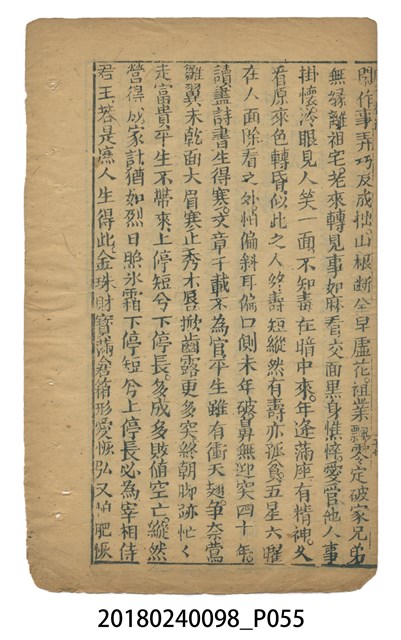 間作事弄巧反成拙山根斷兮早虛花祖業飄零定破家兄弟
無緣離祖宅老來轉見事如麻看交面黑身憔悴愛管他人事
掛懷冷眼見人笑一面不知毒在暗中來年逢滿座有精神久
看原來色轉昏似此之人終壽短縱然有壽亦孤貧五星六曜
在人面除看之外怕偏斜耳偏口側末年破鼻無迎突四十年
讀盡詩書生得寒文章千載不為官平生雖有衝天翅爭奈鶯
雛翼未乾面大眉寒止秀才唇掀齒露更多突終朝脚跡忙忙
走富貴平生不帶來上停短兮下停長多成多敗値空亡縱然
營得成家計猶如烈日照氷霜下停短兮上停長必為宰相侍
君王若是庶人生得此金珠財寶滿倉箱形愛恢弘又怕肥恢
20180240098_P055